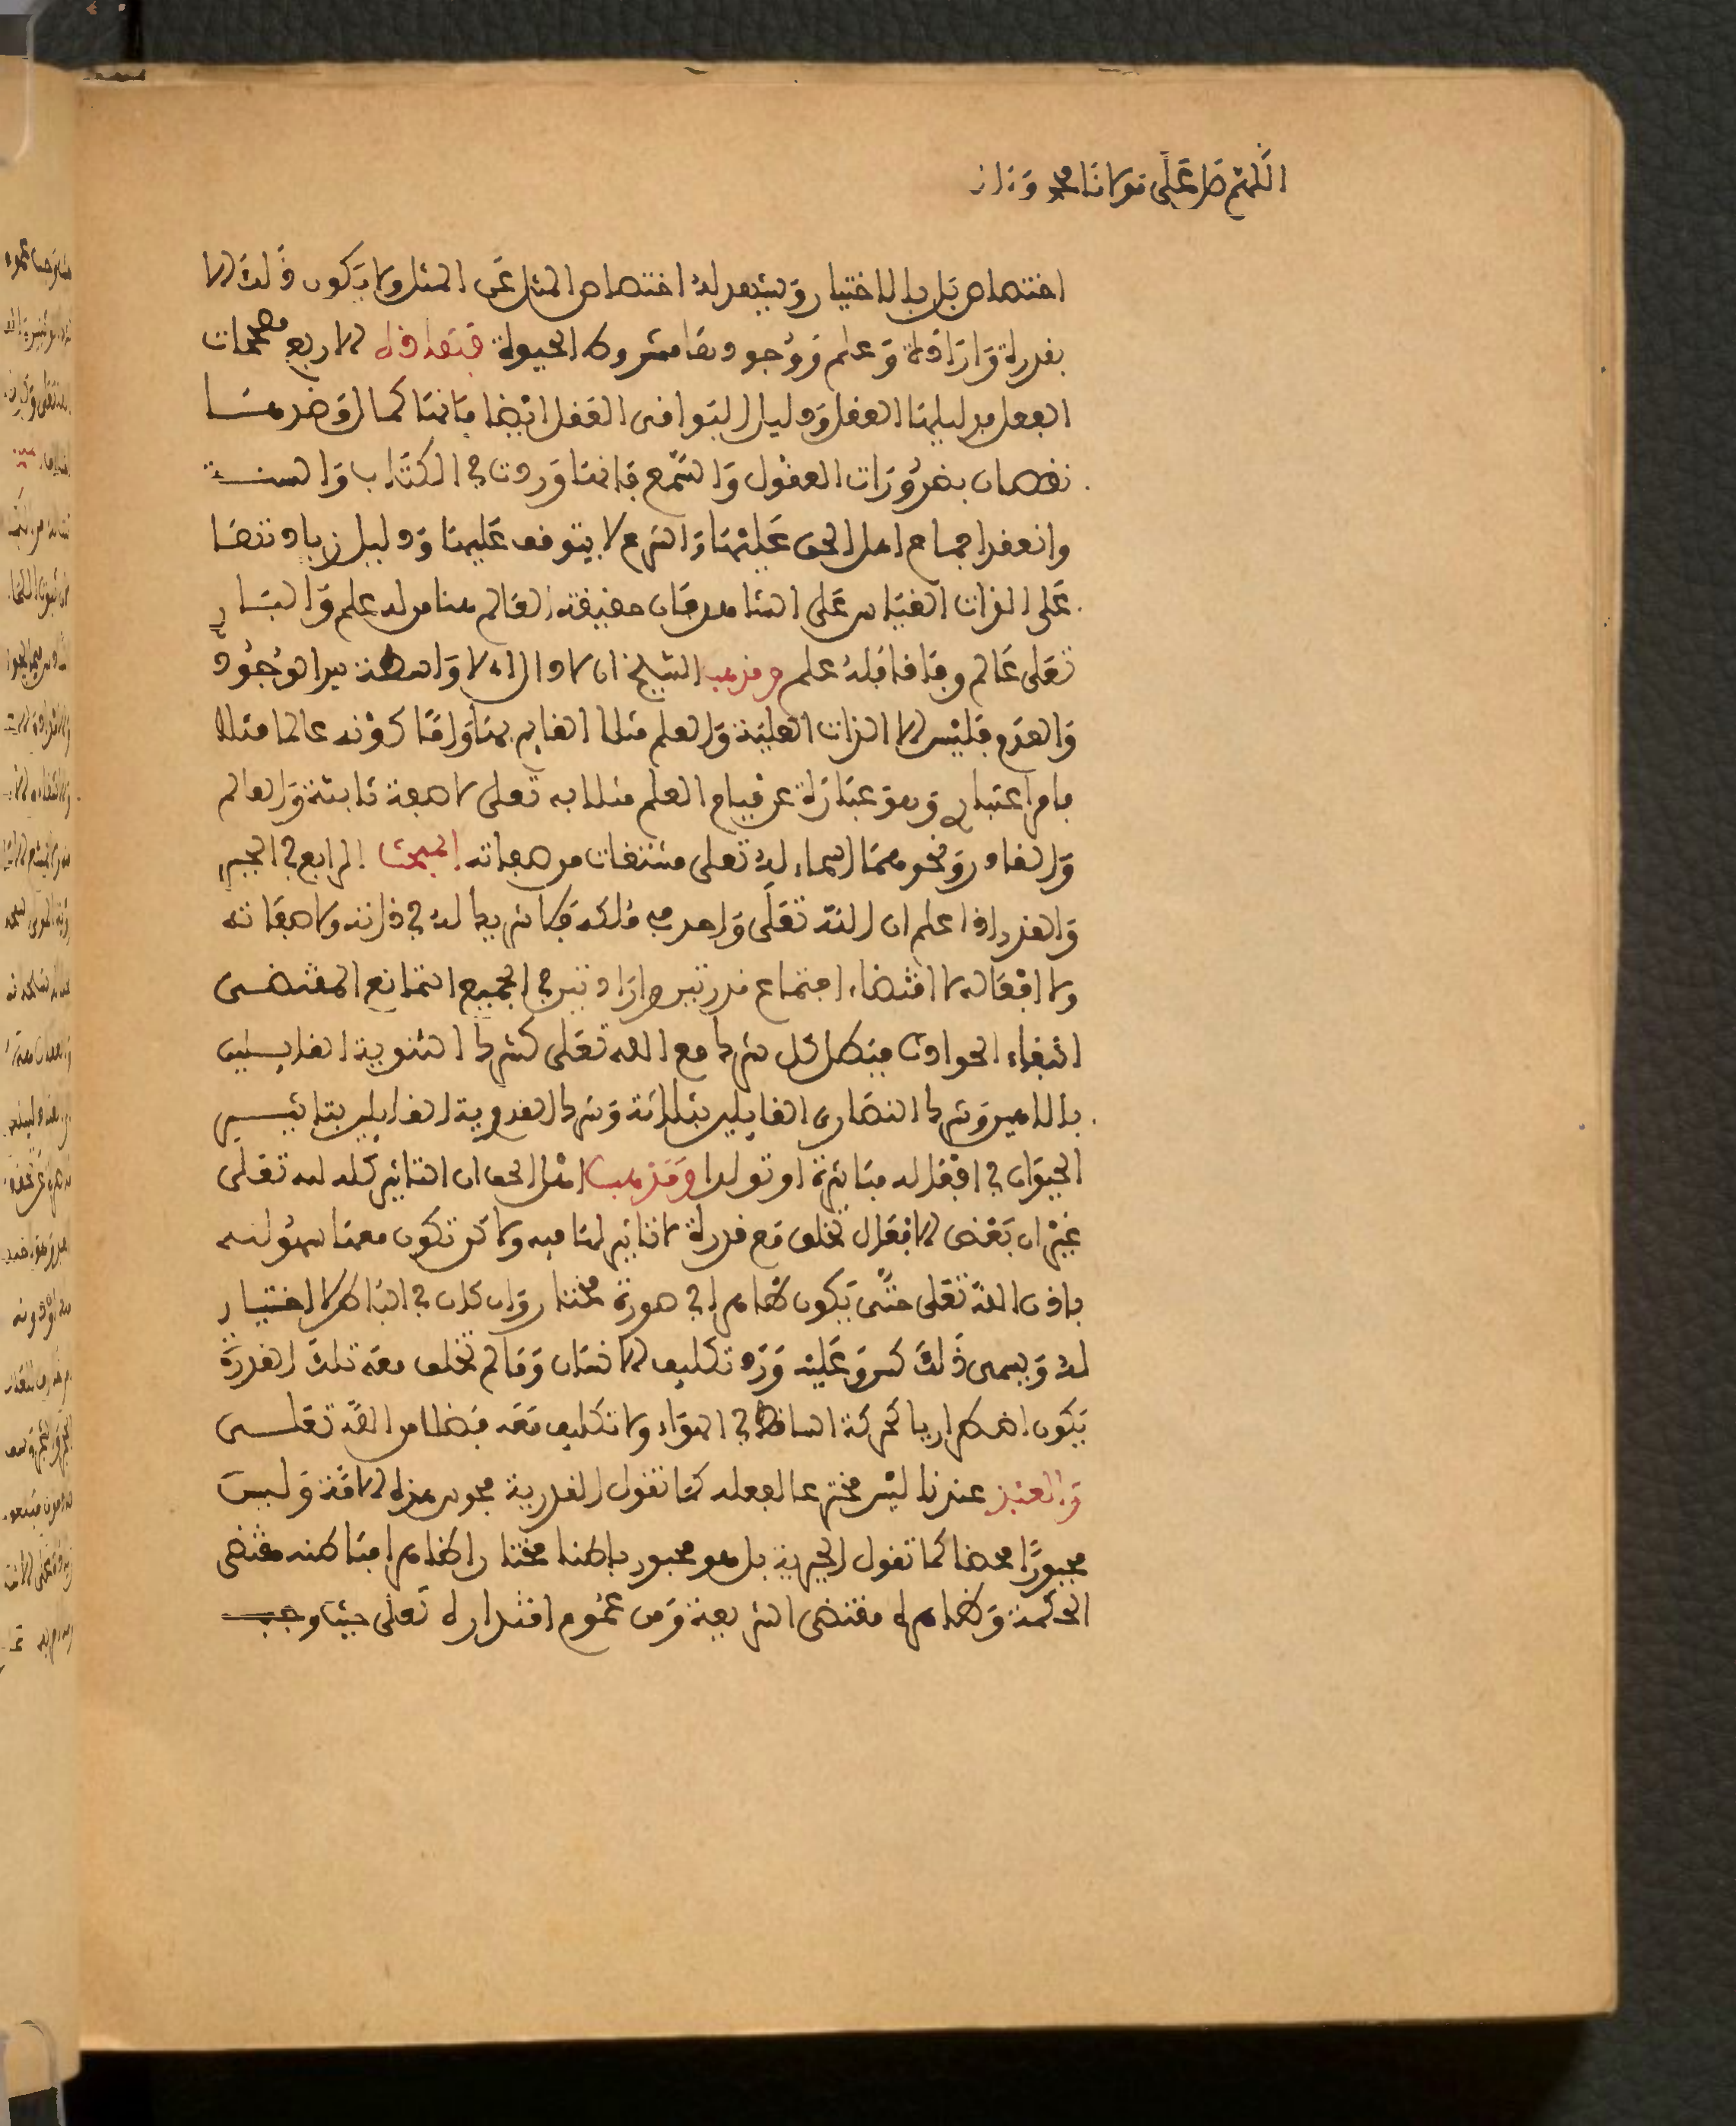 اللهم صل على مولانا محمد وءاله
اختصاص بل بالاختيار ويشهد له اختصاص المثل عن المثل ولا يكون ذلك الا
بقدرة وارادة وعلم ووجودها مشروط بالحيوة فهذه الاربع مصححات
الفعل فدليلها العقل ودليل البواقى العقل ايضا فانها كمال وضدها
نقصان بضرورات العقول والسمع فانها وردت في الكتاب والسنة
وانعقد اجماع اهل الحق عليها والشرع لا يتوقف عليها ودليل زيادتها
على الذات القياس على الشاهد فان حقيقة العالم هنا من له علم والبار
تعلى عالم وفاقا فله علم ومذهب الشيخ ان لا حال اذ لا واسطة بين الوجود
والعدم فليس الا الذات العلية والعلم مثلا القايم بها واما كونه عالما مثلا
فامر اعتبارى وهو عبارة عن قيام العلم مثلا به تعلى لا صفة ثابتة والعالم
والقادر ونحوهما اسماء له تعلى مشتقات من صفاته المبحث الرابع في الجبر
والقدر اذا علم ان الله تعلى واحد في ملكه فلا شريك له في ذاته ولا صفاته
ولا افعاله لاقتضاء اجتماع قدرتين وارادتين في الجميع التمانع المقتضى
انتفاء الحوادث فبطل كل شرك مع الله تعلى كشرك الثنوية القايليـن
بالاهين وشرك النصارى القايلين بثلاثة وشرك القدرية القايلين بتاثيـر
الحيوان في افعاله مباشرة او تولدا ومذهب اهل الحق ان التاثير كله لله تعلى
غير ان بعض الافعال تخلق مع قدرة لا تاثير لها فيه ولاكن تكون معها سهولته
باذن الله تعلى حتى يكون ظاهرا في صورة مختار وان كان في الباطن لا اختيار
له ويسمى ذلك كسبا وعليه ورد تكليف الانسان وما لم تخلق معه تلك القدرة
يكون اضطراريا كحركة الساقط في الهواء ولا تكليف معه فضلا من الله تعلـى
والعبد عندنا ليس مخترعا لفعله كما تقول القدرية مجوس هذه الامة وليس
مجبورا محضا كما تقول الجبرية بل هو مجبور باطنا مختار ظاهرا فباطنه مقتضى
الحكمة وظاهره مقتضى الشريعة ومن عموم اقتداره تعلى حيث وجب